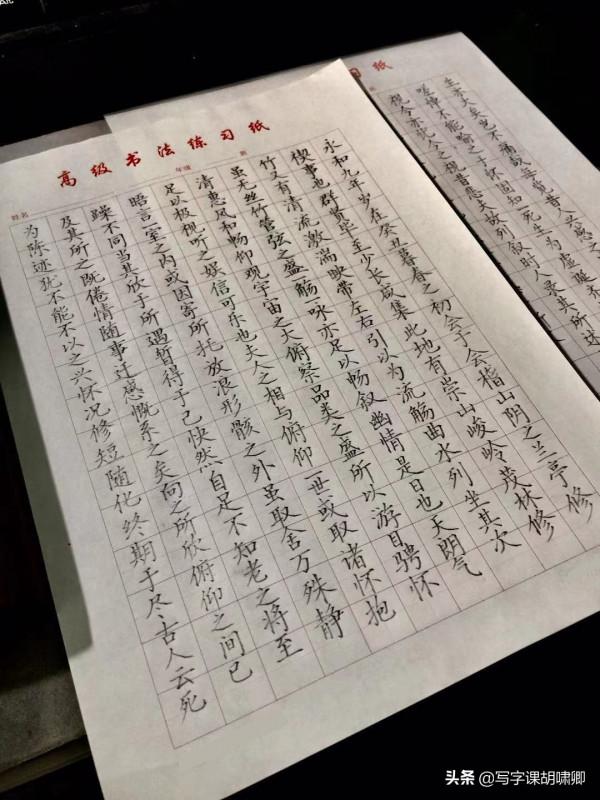 高级书法练习纸
姓名
年级
班
永和九年岁在癸丑暮春之初会于会稽山阴之兰亭修
禊事也群贤毕至少长咸集此地有崇山峻岭茂林修
竹又有清流激湍映带左右引以为流觞曲水列坐其次
虽无丝竹管弦之盛一觞一咏亦足以畅叙幽情是日也天朗气
清惠风和畅仰观宇宙之大俯察品类之盛所以游目骋怀
足以极视听之娱信可乐也夫人之相与俯仰一世或取诸怀抱
晤言一室之内或因寄所托放浪形骸之外虽取舍万殊静
躁不同当其欣于所遇暂得于己快然自足不知老之将至
及其所之既倦情随事迁感慨系之矣向之所欣俯仰之间已
为陈迹犹不能不以之兴怀况修短随化终期于尽古人云死
习纸
生亦大矣岂不痛哉每览昔人兴感之
嗟悼不能喻之于怀固知死生为虚诞
视今亦犹今之视昔悲夫故列叙时人录其所述
头条 @写字课胡啸卿